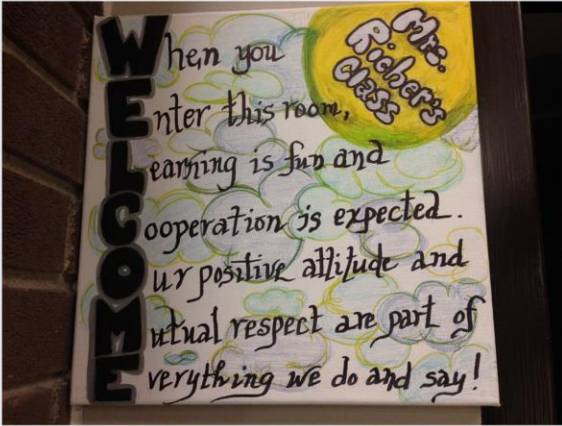 Mrs.
Richer's
Class
When you
Enter this room,
Learning is fun and
Cooperation is expected.
Our positive attitude and
Mutual respect are part of
Everything we do and say!